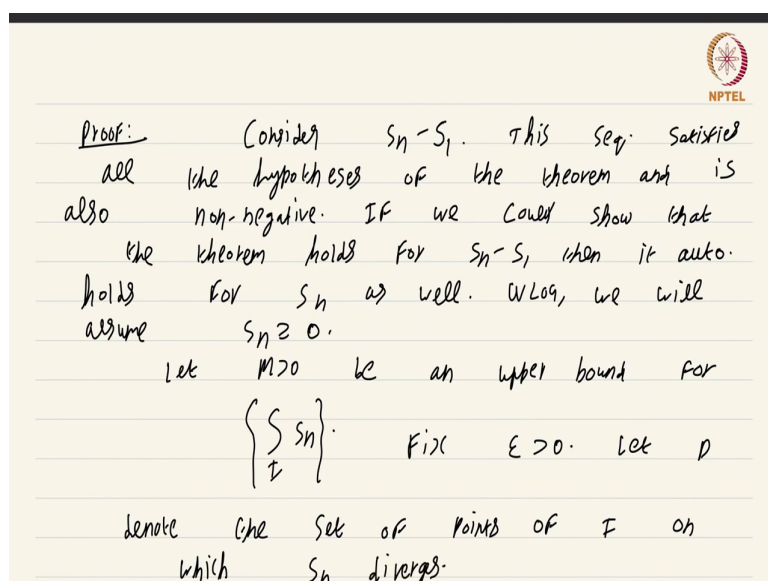 NPTEL
Proof: Consider Sn - S1. This seq. satisfies
all the hypotheses of the theorem and is
also non-negative. If we could show that
the theorem holds for Sn - S1 then it auto.
holds for Sn as well. WLOG, we will
assume Sn ≥ 0.
Let M>0 be an upper bound for
{∫_I Sn}. Fix ε > 0. Let D
denote the set of points of I on
which Sn diverges.